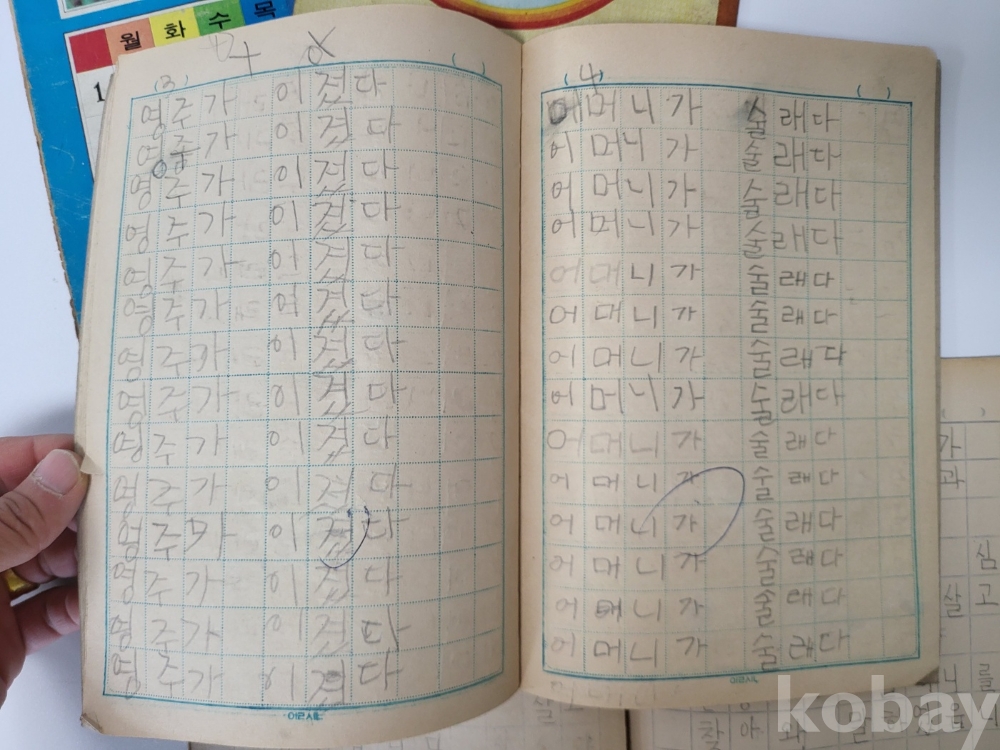 월 화 수 목
1
(3)
영주가 이겼다
영주가 이겼다
영주가 이겼다
영주가 이겼다
영주가 이겼다
영주가 이겼다
영주가 이겼다
영주가 이겼다
영주가 이겼다
영주가 이겼다
영주가 이겼다
영주가 이겼다
영주가 이겼다
영주가 이겼다
(4)
어머니가 술래다
어머니가 술래다
어머니가 술래다
어머니가 술래다
어머니가 술래다
어머니가 술래다
어머니가 술래다
어머니가 술래다
어머니가 술래다
어머니가 술래다
어머니가 술래다
어머니가 술래다
어머니가 술래다
어머니가 술래다
가
과
심
살고
kobay